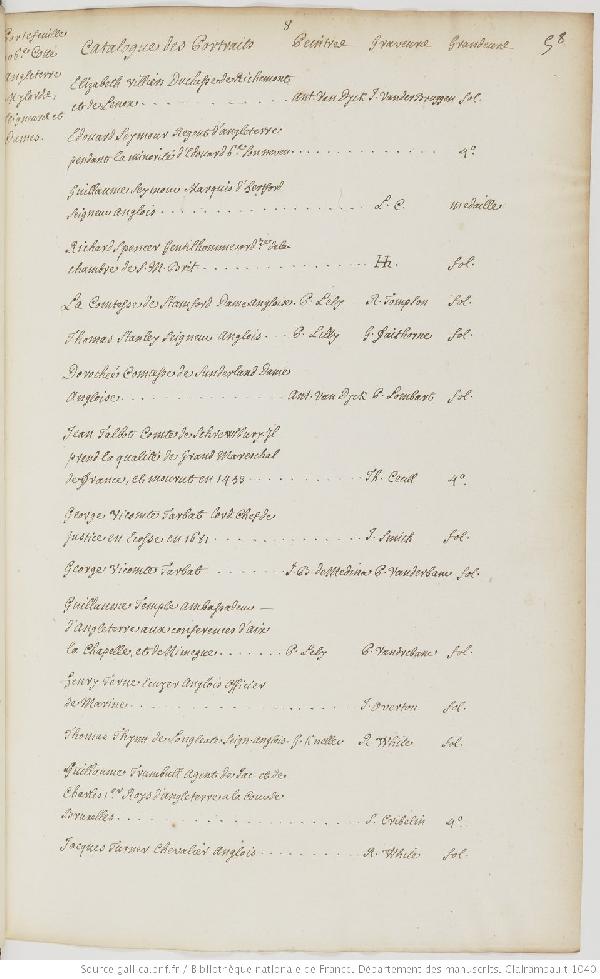 8
58
Portefeuille
Cotté
Angleterre
Mylords,
Seigneurs et
Dames.
Catalogue des Portraits Peintres Graveurs Grandeurs
Elizabeth Villiers Duchesse de Richemont
et de Lenox Ant. Van Dyck J. Vander Bruggen fol.
Edouard Seymour Regent d'angleterre
pendant la minorité d'Edouard 6.me son neveu 4.º
Guillaume Seymour Marquis d'hertford
Seigneur Anglois L. C. medaille
Richard Spencer Gentilhomme ord.re de la
chambre de S. M. Brit. Hh. fol.
La Comtesse de Stamford Dame Angloise P. Lely R. Tompson fol.
Thomas Stanley Seigneur Anglois P. Lilly G. Faithorne fol.
Dorothée Comtesse de Sunderland Dame
Angloise Ant. Van Dyck P. Lombart fol.
Jean Talbot Comte de Schrewsbury Jl
prend la qualité de Grand Mareschal
de France, et mourut en 1453 Th. Cecill 4.º
George Vicomte Tarbat lord Chef de
justice en Ecosse en J. Smith fol.
George Vicomte Tarbat J. B. de Medina P. Vanderbanc fol.
Guillaume Temple Ambassadeur
d'Angleterre aux conferences d'aix
la Chapelle, et de Nimegue P. Lely P. Vandrebanc fol.
henry Terne Anglois Officier
de Marine J. Overton fol.
Thomas Thynn de Longleate Seign. Anglois G. Kneller R. White fol.
Guillaume Trumbull Agent de Jac. et de
Charles 1.er Roys d'Angleterre a la Cour de
Bruxelles S. Gribelin 4.º
Jacques Turner Chevalier Anglois R. White fol.
Source gallica.bnf.fr / Bibliothèque nationale de France. Département des manuscrits. Clairambault 1040